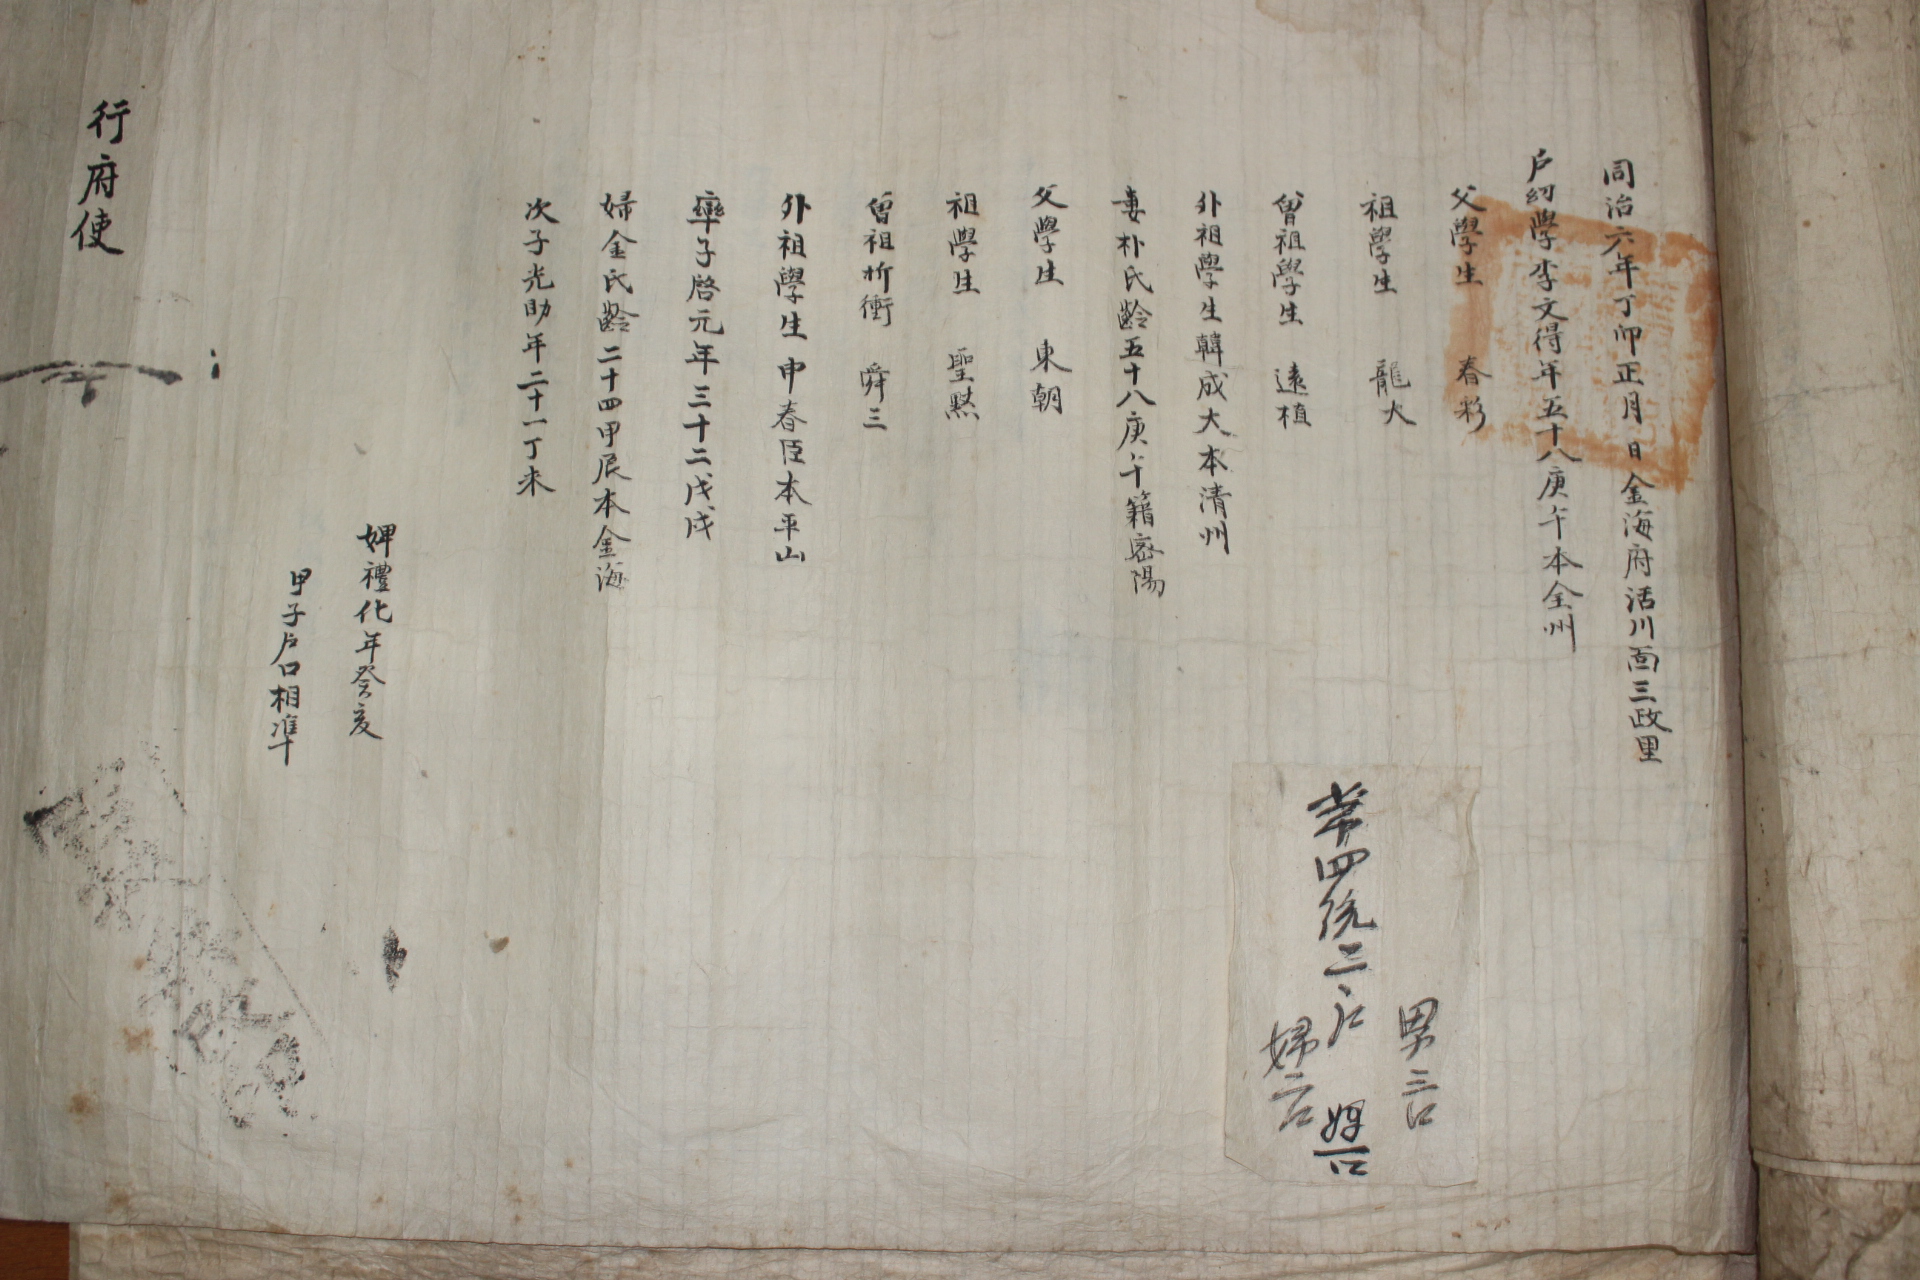 同治六年丁卯正月 日金海府活川面三政里
戶幼學李文得年五十八庚午本全州
父學生 春彩
祖學生 龍大
曾祖學生 遠植
外祖學生韓成大本淸州
妻朴氏齡五十八庚午籍密陽
父學生 東朝
祖學生 聖默
曾祖折衝 舜三
外祖學生申春臣本平山
率子啓元年三十二戊戌
婦金氏齡二十四甲辰本金海
次子光助年二十一丁未
婢禮化年癸亥
甲子戶口相準
行府使
男三口
第四統二戶 婢一口
婦二口